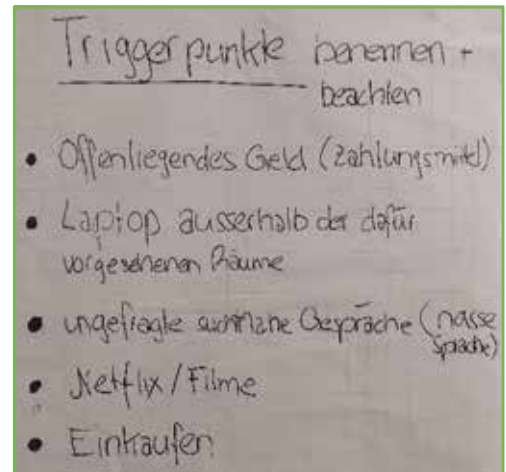 Triggerpunkte benennen +
beachten
• Offenliegendes Geld (Zahlungsmittel)
• Laptop ausserhalb der dafür
vorgesehenen Räume
• ungefragte suchtnahe Gespräche (nasse
Sprache)
• Netflix / Filme
• Einkaufen